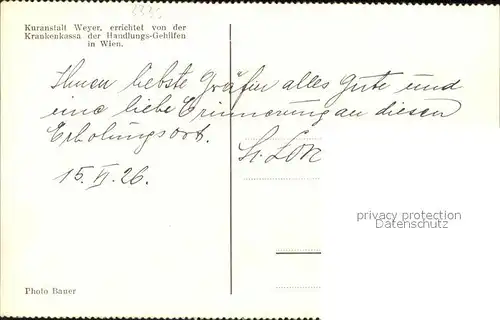 Kuranstalt Weyer, errichtet von der
Krankenkassa der Handlungs-Gehilfen
in Wien.
Ihnen liebste Gräfin alles Gute und
eine liebe Erinnerung an diesen
Erholungsort.
15. VI. 26.
privacy protection
Datenschutz
Photo Bauer